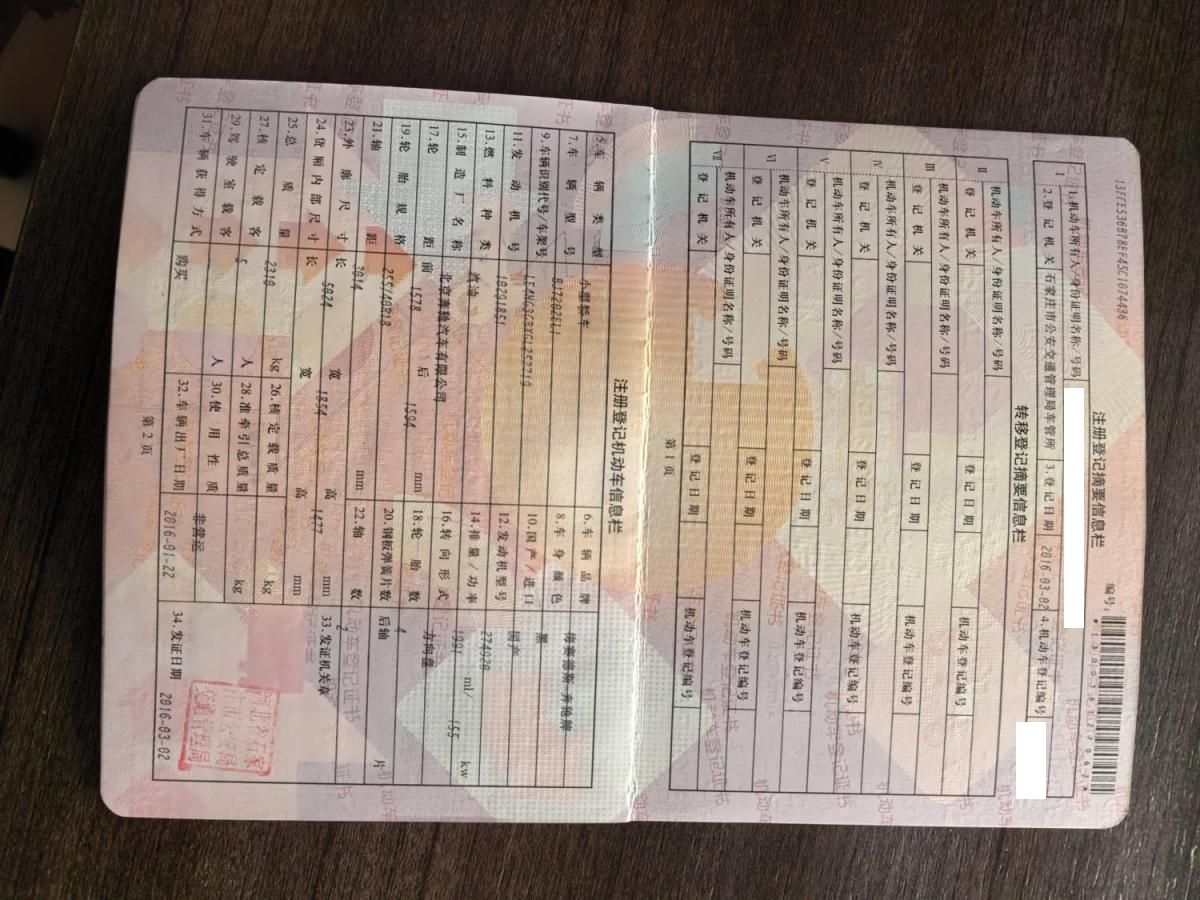 13FFE536B78EF45C1074436
注册登记摘要信息栏
编号:
I
1.机动车所有人/身份证明名称/号码
2.登记机关 石家庄市公安交通管理局车管所 3.登记日期 2016-03-02 4.机动车登记编号
转移登记摘要信息栏
II 机动车所有人/身份证明名称/号码
登记机关 登记日期 机动车登记编号
III 机动车所有人/身份证明名称/号码
登记机关 登记日期 机动车登记编号
IV 机动车所有人/身份证明名称/号码
登记机关 登记日期 机动车登记编号
V 机动车所有人/身份证明名称/号码
登记机关 登记日期 机动车登记编号
VI 机动车所有人/身份证明名称/号码
登记机关 登记日期 机动车登记编号
VII 机动车所有人/身份证明名称/号码
登记机关 登记日期 机动车登记编号
第1页
注册登记机动车信息栏
5.车辆类型 小型轿车 6.车辆品牌 梅赛德斯-奔驰牌
7.车辆型号 BJ7202ELI 8.车身颜色 黑
9.车辆识别代号/车架号 10.国产/进口 国产
11.发动机号 12.发动机型号 274920
13.燃料种类 汽油 14.排量/功率 1991 ml/ 155 kw
15.制造厂名称 北京奔驰汽车有限公司 16.转向形式 方向盘
17.轮距 前 1578 后 1594 mm 18.轮胎数 4
19.轮胎规格 255/40R18 20.钢板弹簧片数 后轴 片
21.轴距 3014 mm 22.轴数 2
23.外廓尺寸 长 5024 宽 1854 高 1477 mm 33.发证机关章
24.货厢内部尺寸 长 宽 高 mm
25.总质量 2310 kg 26.核定载质量 kg
27.核定载客 5 人 28.准牵引总质量 kg
29.驾驶室载客 人 30.使用性质 非营运
31.车辆获得方式 购买 32.车辆出厂日期 2016-01-22 34.发证日期 2016-03-02
第2页